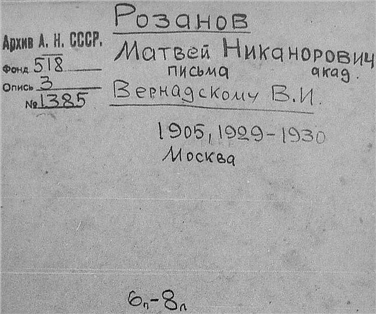 Розанов
Архив А. Н. СССР.
Фонд 518
Опись 3
№ 1385
Матвей Никанорович
письма акад.
Вернадскому В.И.
1905, 1929-1930
Москва
6п-8л